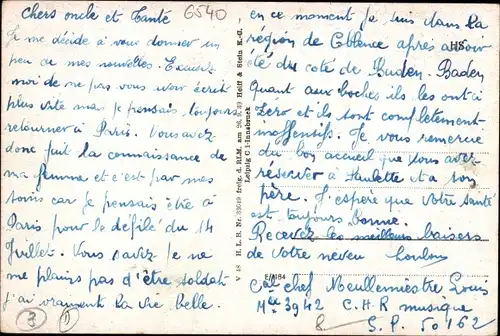 6540
Chers oncle et Tante
Je me décide à vous donner un
peu de mes nouvelles. Excusez
moi de ne pas vous avoir écrit
plus vite mais je pensais toujours
retourner à Paris. Vous avez
donc fait la connaissance de
ma femme et c'est par mes
car je pensais être à
Paris pour le défilé du 14
Juillet. Vous savez je ne
me plains pas d'être soldat
j'ai vraiment la vie belle.
3 1
V 48 H. L. B. Nr. 33049 freig. d. RLM. am 26. 39 Heiff & Stein K.-G.,
Leipzig C 1-Innsbruck
en ce moment je suis dans la
région de Coblence après avoir
HS
été du coté de Baden. Baden
Quant aux boches ils les ont à
Zéro et ils sont complètement
inoffensifs. Je vous remercie
du bon accueil que vous avez
réservér à Paulette et a son
père. J'espère que votre santé
est toujours bonne.
Recevez les meilleurs baisers
de votre neveu Loulou
E/4184
Cal chef Meullemiestre Louis
Mle 3942 C.H.R musique
S.P. 50162